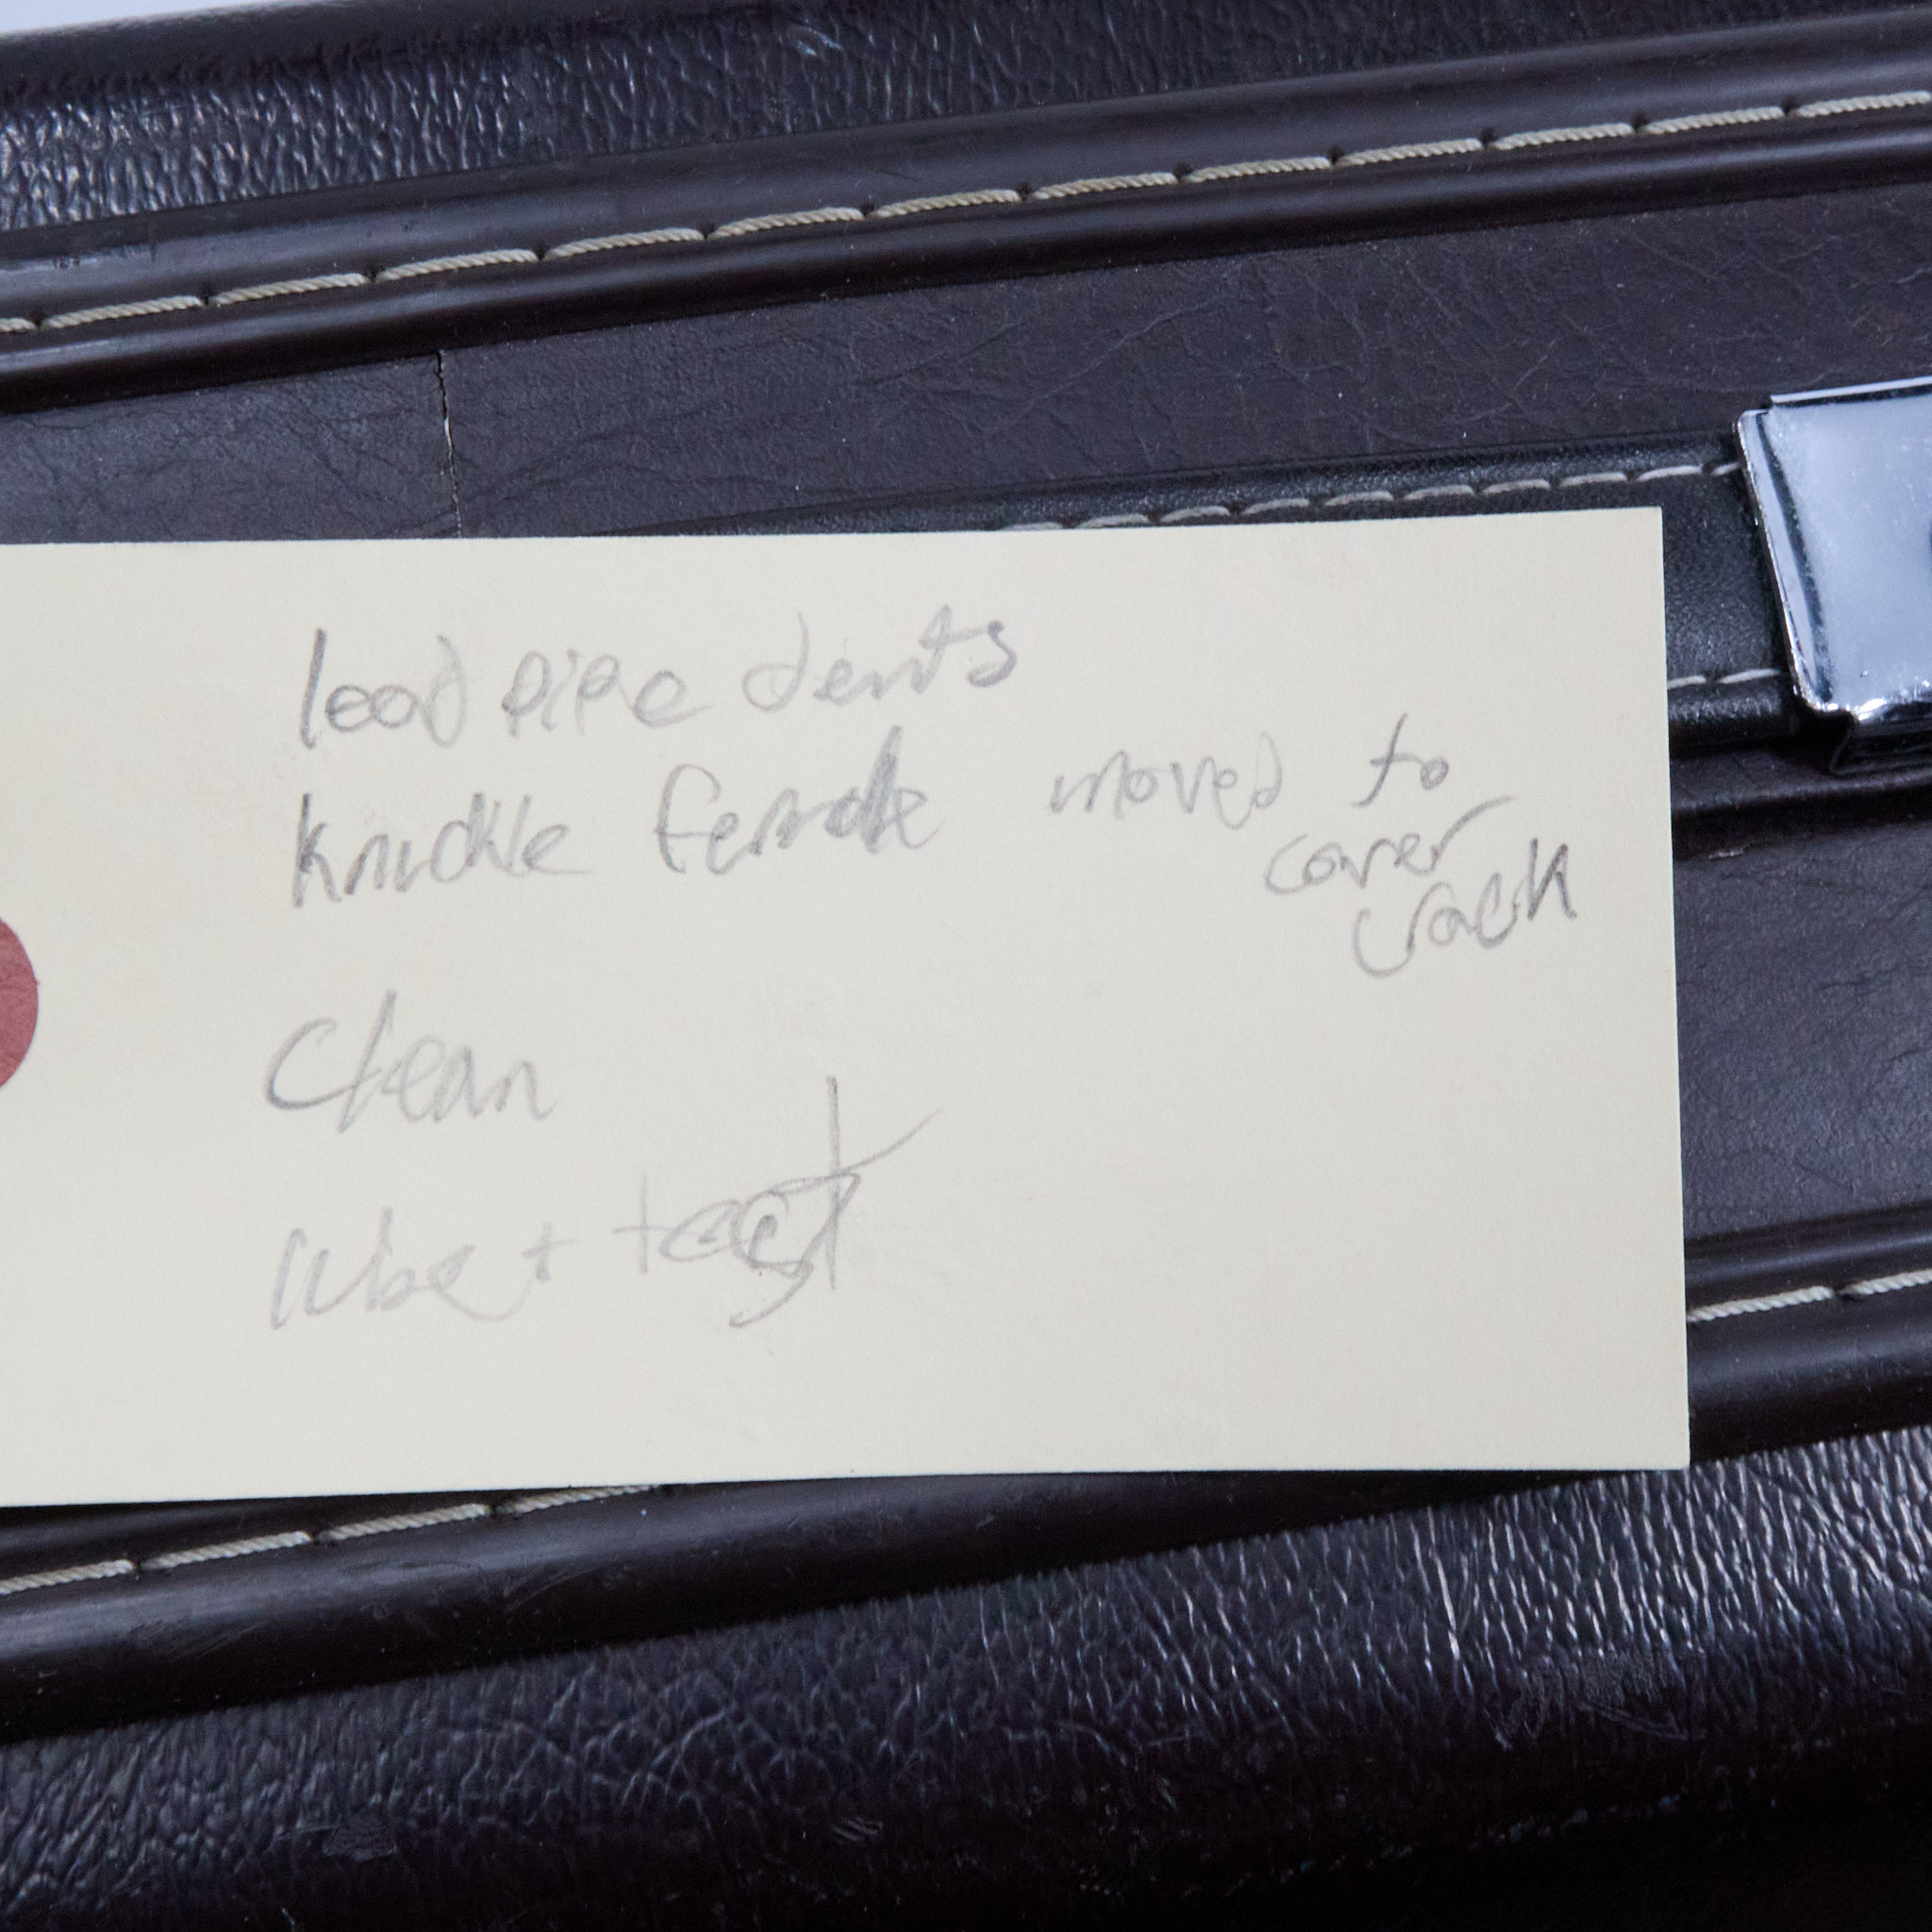 lead pipe dents
knuckle female moved to
cover
crack
Clean
lube + test